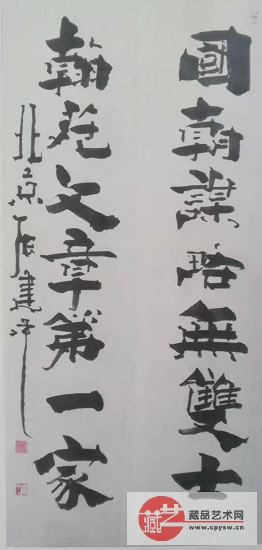 國朝謀略無雙士
翰苑文章第一家
北京張建平
藏艺
藏品艺术网
www.cpysw.cn